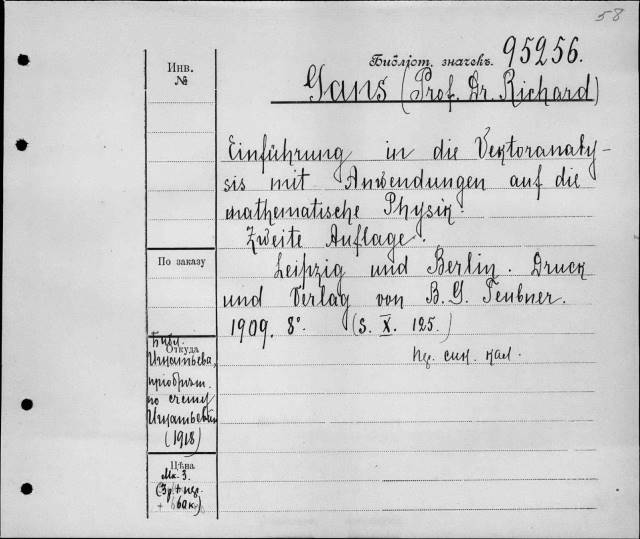 58
Инв.
№
Библiот. значекъ. 95256.
Gans (Prof. Dr. Richard)
Einführung in die Vektoranaly-
sis mit Anwendungen auf die
mathematische Physik.
Zweite Auflage.
Leipzig und Berlin. Druck
und Verlag von B. G. Teubner.
1909. 8°. (S. X. 125.)
син. кал.
По заказу
Откуда
Библ.
Игнатьева,
прiобрѣт.
по счету
(1918)
Цѣна
Мк. 3.